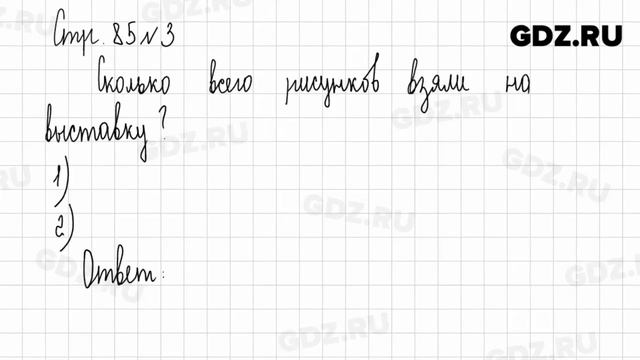 Стр. 85 №3
GDZ.RU
Сколько всего рисунков взяли на
выставку?
1)
2)
Ответ:
GDZ.RU
GDZ.RU
GDZ.RU
GDZ.RU
GDZ.RU
GDZ.RU
GDZ.RU
GDZ.RU
GDZ.RU